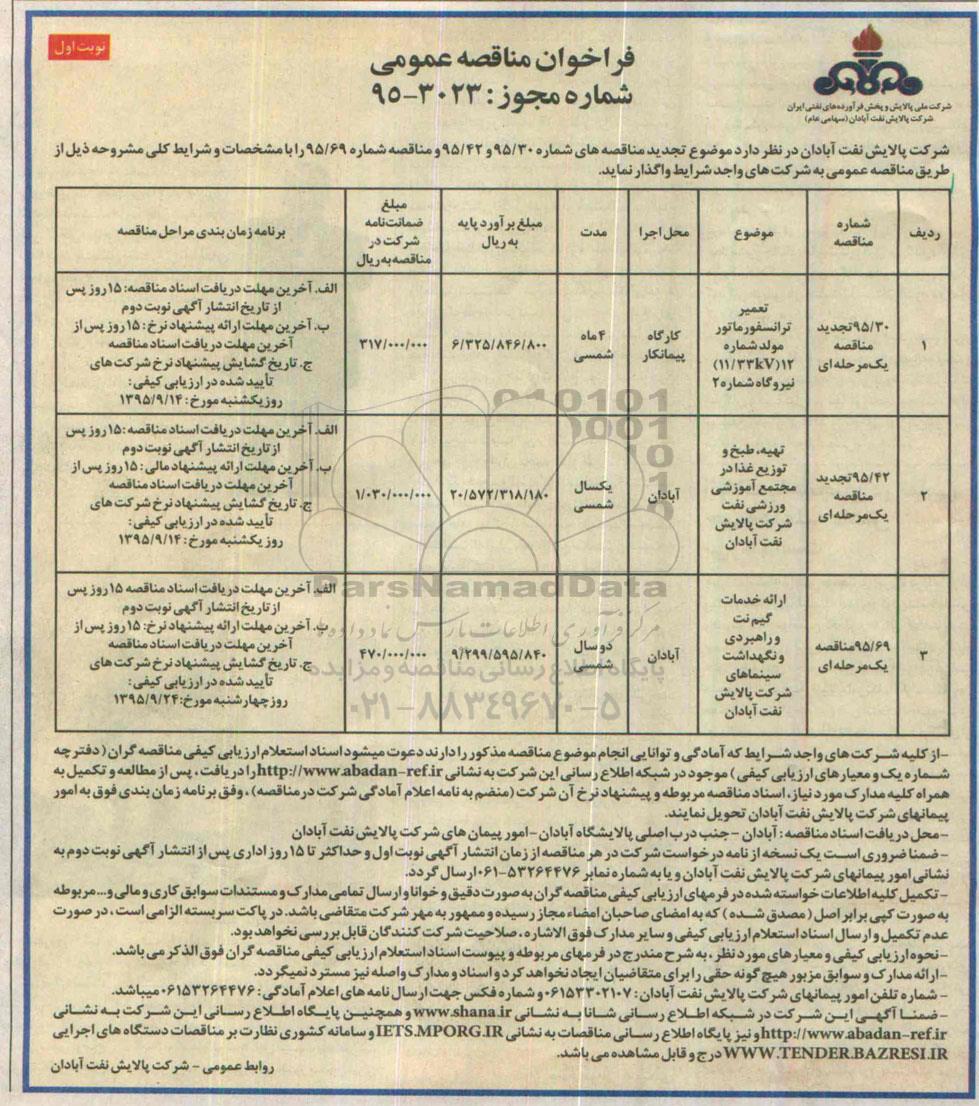 نوبت اول
شرکت ملی پالایش و پخش فرآورده‌های نفتی ایران
شرکت پالایش نفت آبادان (سهامی عام)
فراخوان مناقصه عمومی
شماره مجوز: ۳۰۲۳-۹۵
شرکت پالایش نفت آبادان در نظر دارد موضوع تجدید مناقصه های شماره ۹۵/۳۰ و ۹۵/۴۲ و مناقصه شماره ۹۵/۶۹ را با مشخصات و شرایط کلی مشروحه ذیل از
طریق مناقصه عمومی به شرکت های واجد شرایط واگذار نماید.
ردیف
شماره
مناقصه
موضوع
محل اجرا
مدت
مبلغ برآورد پایه
به ریال
مبلغ
ضمانت‌نامه
شرکت در
مناقصه به ریال
برنامه زمان بندی مراحل مناقصه
۱
۹۵/۳۰تجدید
مناقصه
یک مرحله ای
تعمیر
ترانسفورماتور
مولد شماره
۱۲(۱۱/۳۳kV)
نیروگاه شماره ۲
کارگاه
پیمانکار
۴ماه
شمسی
۶/۳۲۵/۸۴۶/۸۰۰
۳۱۷/۰۰۰/۰۰۰
الف. آخرین مهلت دریافت اسناد مناقصه: ۱۵ روز پس
از تاریخ انتشار آگهی نوبت دوم
ب. آخرین مهلت ارائه پیشنهاد نرخ: ۱۵ روز پس از
آخرین مهلت دریافت اسناد مناقصه
ج. تاریخ گشایش پیشنهاد نرخ شرکت های
تأیید شده در ارزیابی کیفی:
روز یکشنبه مورخ: ۱۳۹۵/۹/۱۴
۲
۹۵/۴۲تجدید
مناقصه
یک مرحله ای
تهیه، طبخ و
توزیع غذا در
مجتمع آموزشی
ورزشی نفت
شرکت پالایش
نفت آبادان
آبادان
یکسال
شمسی
۲۰/۵۷۲/۳۱۸/۱۸۰
۱/۰۳۰/۰۰۰/۰۰۰
الف. آخرین مهلت دریافت اسناد مناقصه: ۱۵ روز پس
از تاریخ انتشار آگهی نوبت دوم
ب. آخرین مهلت ارائه پیشنهاد مالی: ۱۵ روز پس از
آخرین مهلت دریافت اسناد مناقصه
ج. تاریخ گشایش پیشنهاد نرخ شرکت های
تأیید شده در ارزیابی کیفی:
روز یکشنبه مورخ: ۱۳۹۵/۹/۱۴
۳
۹۵/۶۹مناقصه
یک مرحله ای
ارائه خدمات
گیم نت
و راهبردی
و نگهداشت
سینماهای
شرکت پالایش
نفت آبادان
آبادان
دو سال
شمسی
۹/۲۹۹/۵۹۵/۸۴۰
۴۷۰/۰۰۰/۰۰۰
الف. آخرین مهلت دریافت اسناد مناقصه ۱۵ روز پس
از تاریخ انتشار آگهی نوبت دوم
ب. آخرین مهلت ارائه پیشنهاد نرخ: ۱۵ روز پس از
آخرین مهلت دریافت اسناد مناقصه
ج. تاریخ گشایش پیشنهاد نرخ شرکت های
تأیید شده در ارزیابی کیفی:
روز چهارشنبه مورخ: ۱۳۹۵/۹/۲۴
ParsNamadData
مرکز فرآوری اطلاعات پارس نماد داده ها
پایگاه اطلاع رسانی مناقصه و مزایده
۰۲۱-۸۸۳۴۹۶۷۰-۵
-از کلیه شرکت های واجد شرایط که آمادگی و توانایی انجام موضوع مناقصه مذکور را دارند دعوت میشود اسناد استعلام ارزیابی کیفی مناقصه گران (دفترچه
شماره یک و معیارهای ارزیابی کیفی) موجود در شبکه اطلاع رسانی این شرکت به نشانی http://www.abadan-ref.ir را دریافت، پس از مطالعه و تکمیل به
همراه کلیه مدارک مورد نیاز، اسناد مناقصه مربوطه و پیشنهاد نرخ آن شرکت (منضم به نامه اعلام آمادگی شرکت در مناقصه)، وفق برنامه زمان بندی فوق به امور
پیمانهای شرکت پالایش نفت آبادان تحویل نمایند.
-محل دریافت اسناد مناقصه: آبادان - جنب درب اصلی پالایشگاه آبادان - امور پیمان های شرکت پالایش نفت آبادان
- ضمنا ضروری است یک نسخه از نامه درخواست شرکت در هر مناقصه از زمان انتشار آگهی نوبت اول و حداکثر تا ۱۵ روز اداری پس از انتشار آگهی نوبت دوم به
نشانی امور پیمانهای شرکت پالایش نفت آبادان و یا به شماره نمابر ۵۳۲۶۴۴۷۶-۰۶۱ ارسال گردد.
- تکمیل کلیه اطلاعات خواسته شده در فرمهای ارزیابی کیفی مناقصه گران به صورت دقیق و خوانا و ارسال تمامی مدارک و مستندات سوابق کاری و مالی و... مربوطه
به صورت کپی برابر اصل (مصدق شده) که به امضای صاحبان امضاء مجاز رسیده و ممهور به مهر شرکت متقاضی باشد. در پاکت سربسته الزامی است، در صورت
عدم تکمیل و ارسال اسناد استعلام ارزیابی کیفی و سایر مدارک فوق الاشاره، صلاحیت شرکت کنندگان قابل بررسی نخواهد بود.
-نحوه ارزیابی کیفی و معیارهای مورد نظر، به شرح مندرج در فرمهای مربوطه و پیوست اسناد استعلام ارزیابی کیفی مناقصه گران فوق الذکر می باشد.
-ارائه مدارک و سوابق مزبور هیچ گونه حقی را برای متقاضیان ایجاد نخواهد کرد و اسناد و مدارک واصله نیز مسترد نمیگردد.
- شماره تلفن امور پیمانهای شرکت پالایش نفت آبادان: ۰۶۱۵۳۳۰۲۱۰۷ و شماره فکس جهت ارسال نامه های اعلام آمادگی: ۰۶۱۵۳۲۶۴۴۷۶ میباشد.
- ضمنا آگهی این شرکت در شبکه اطلاع رسانی شانا به نشانی www.shana.ir و همچنین پایگاه اطلاع رسانی این شرکت به نشانی
http://www.abadan-ref.ir و نیز پایگاه اطلاع رسانی مناقصات به نشانی IETS.MPORG.IR و سامانه کشوری نظارت بر مناقصات دستگاه های اجرایی
WWW.TENDER.BAZRESI.IR درج و قابل مشاهده می باشد.
روابط عمومی - شرکت پالایش نفت آبادان